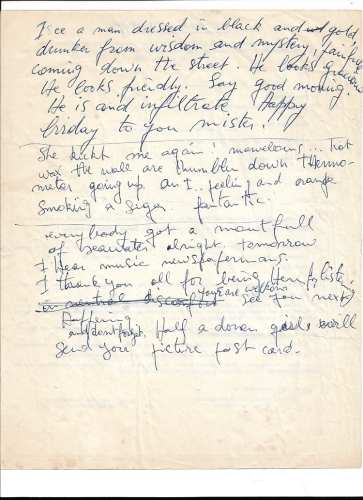 I see a man dressed in black and gold
drunker from wisdom and mystery,
coming down the street. He looks
He looks friendly. Say good morning.
He is and infiltrate. Happy
friday to you mister.
She kickt me again! marvelous... hot
wax the walls are thumblen down thermo-
meter going up. an I.. feeling and orange
smoking a sigar fantastic.
everybody got a mouthfull
of alright tomorrow
I hear music newspaperman.
I thank you all for being Here for listening
in neutral you are welkom see you next
Happening
and dont forget. Half a dozen girls will
send you picture post card.